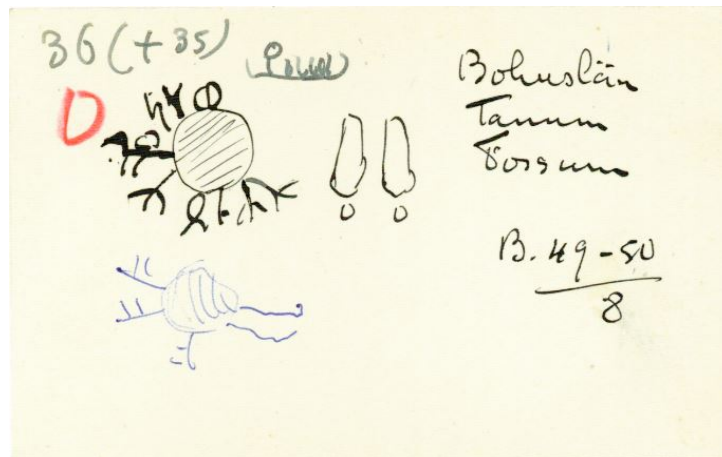 36 (+35)
D
Bohuslän
Tanum
Fossum
B. 49-50
8